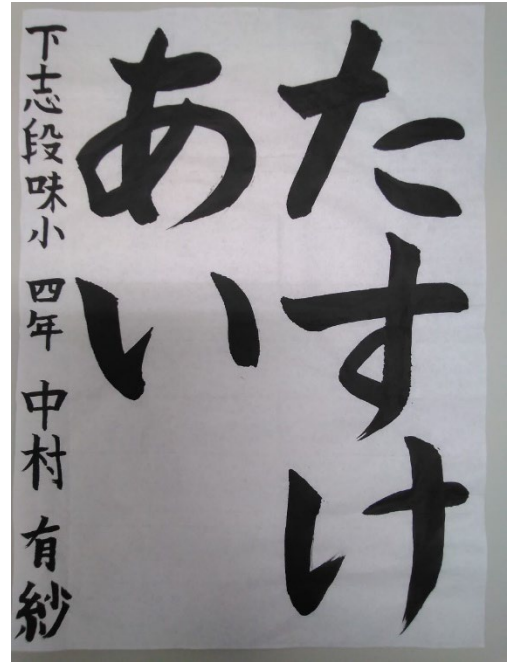 たすけ
あい
下志段味小 四年 中村 有紗